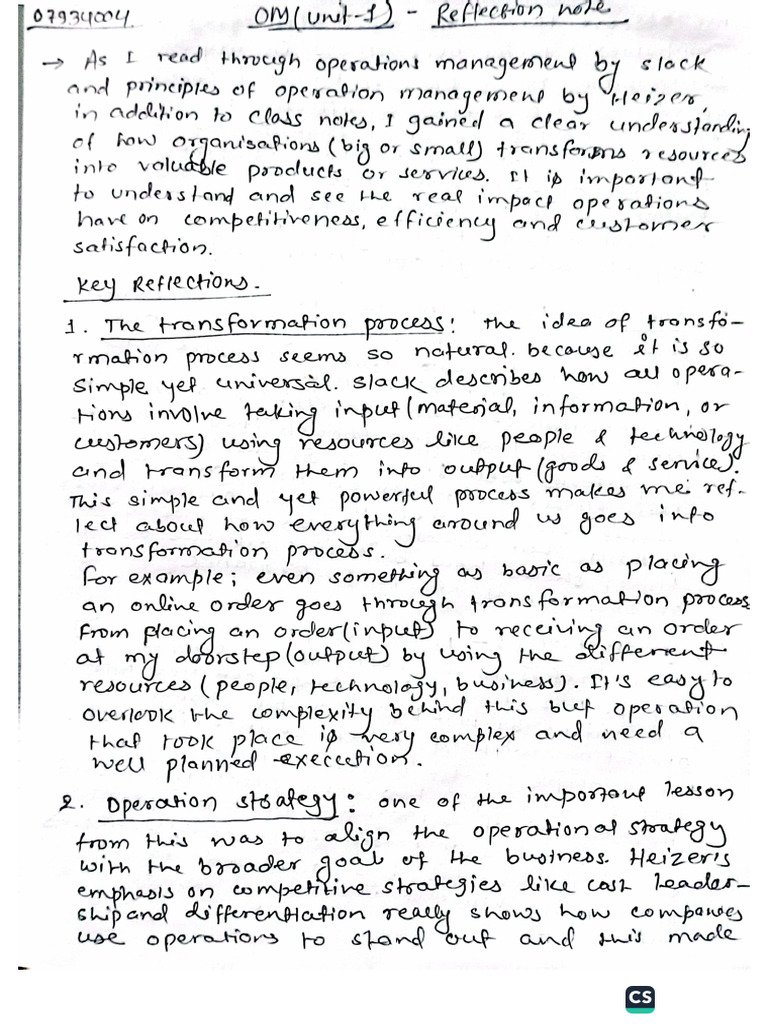 07934004 OM(unit-1) - Reflection note
→ As I read through operations management by slack
and principles of operation management by Heizer,
in addition to class notes, I gained a clear understanding
of how organisations (big or small) transforms resources
into valuable products or services. It is important
to understand and see the real impact operations
have on competitiveness, efficiency and customer
satisfaction.
Key Reflections.
1. The transformation process: the idea of transfo-
rmation process seems so natural. because it is so
simple yet universal. Slack describes how all opera-
tions involve taking input (material, information, or
customers) using resources like people & technology
and transform them into output (goods & service).
This simple and yet powerful process makes me ref-
lect about how everything around us goes into
transformation process.
for example; even something as basic as placing
an online order goes through transformation process
from placing an order (input) to receiving an order
at my doorstep (output) by using the different
resources (people, technology, business). It's easy to
overlook the complexity behind this but operation
that took place is very complex and need a
well planned execution.
2. Operation strategy: one of the important lesson
from this was to align the operational strategy
with the broader goal of the business. Heizer's
emphasis on competitive strategies like cost leader-
ship and differentiation really shows how companies
use operations to stand out and this made
CS